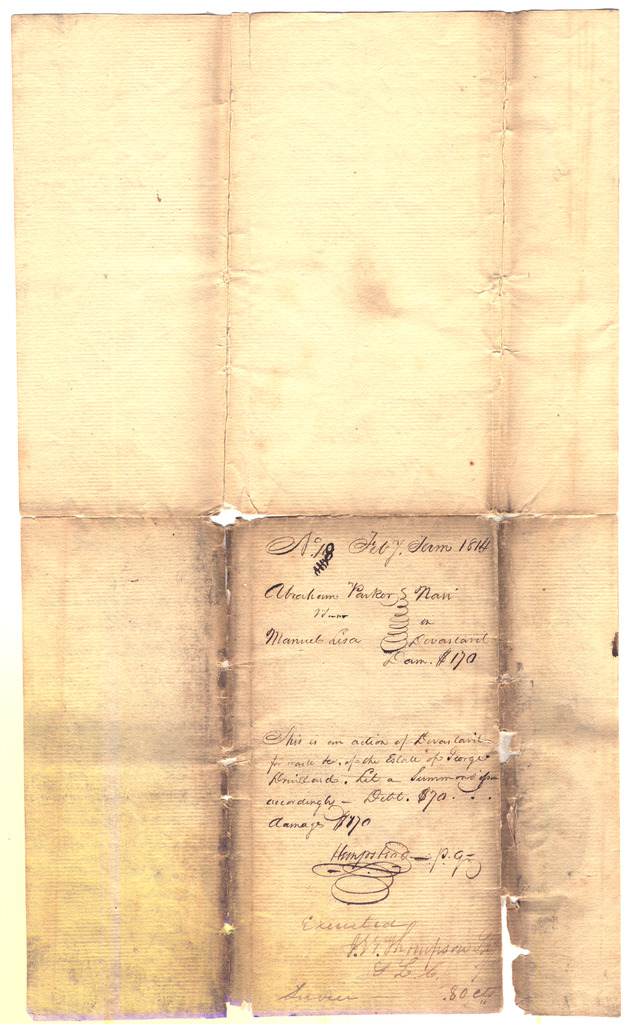 No. 18 Feby. Term 1814
Abraham Parker Narr
vs in
Manuel Lisa Devastavit
Dam. $170
This is an action of Devastavit
for waste &c. of the Estate of George
Druillard. Let a Summons
accordingly – Debt. $70. . .
damages $170
Hempstead p. q.
Executed
Thompson
S L C
Service .80 cts